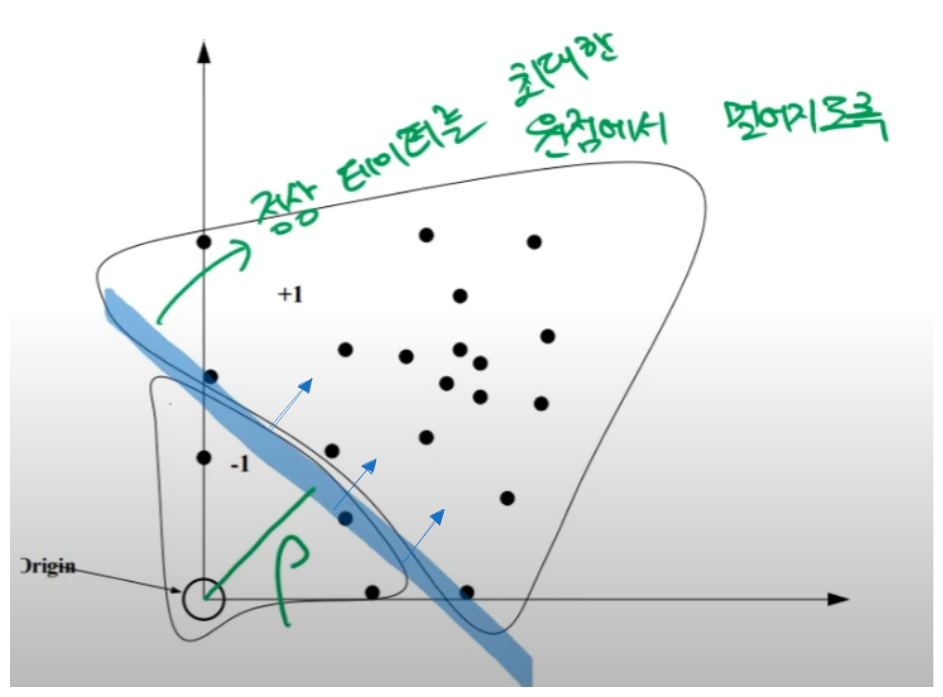 정상 데이터를 최대한
원점에서 멀어지도록
+1
-1
ρ
Origin